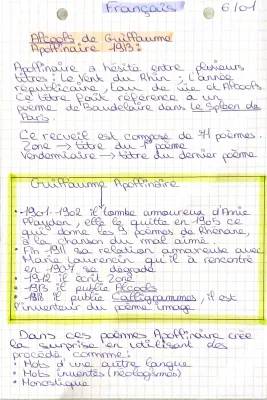 Français 6/01
Alcools de Guillaume
Apollinaire 1913:
Apollinaire a hésité entre plusieurs
titres : Le Vent du Rhin, L'année
républicaine, Eau de vie et Alcools.
Ce titre fait référence à un
poème de Baudelaire dans Le Spleen de
Paris.
Ce recueil est composé de 71 poèmes.
Zone → titre du 1er poème
Vendemiaire → titre du dernier poème
Guillaume Apollinaire
• 1901-1902 il tombe amoureux d'Annie
Playden, elle le quitte en 1905 ce
qui donne les 9 poèmes de Rhénane,
à la chanson du mal aimé.
• Fin 1911 sa relation amoureuse avec
Marie Laurencin qu'il a rencontré
en 1907 se dégrade.
• 1912 il écrit Zone
• 1913 il publie Alcools
• 1918 il publie Calligrammes, il est
l'inventeur du poème image
Dans ces poèmes Apollinaire crée
la surprise en utilisant des
procédé comme :
• Mots d'une autre langue
• Mots inventés (néologismes)
• Monostique